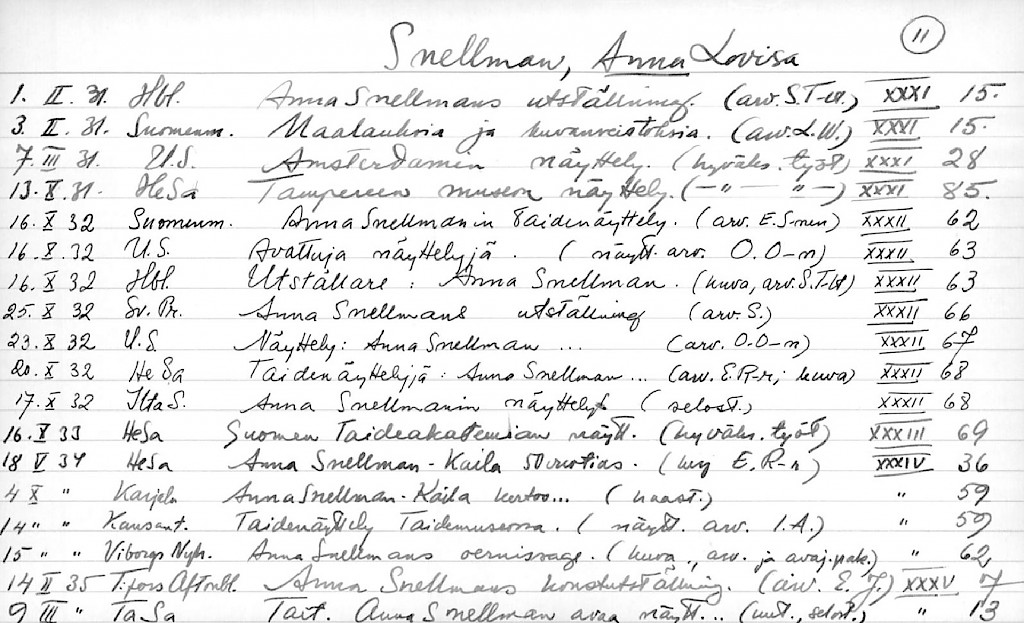 11
Snellman, Anna Lovisa
1. II. 31. Hbl. Anna Snellmans utställning. (arv. S.T-ll.) XXXI 15.
3. II. 31. Suomenm. Maalauksia ja kuvanveistoksia. (arv. L.W.) XXXI 15.
7. III 31. U.S. Amsterdamin näyttely. (hyväks. työt) XXXI 28
13. X. 31. HeSa Tampereen museon näyttely. (—"— —"—) XXXI 85.
16. X 32 Suomenm. Anna Snellmanin taidenäyttely. (arv. E. S-nen) XXXII 62
16. X. 32 U.S. Avattuja näyttelyjä. (näytt. arv. O.O-n) XXXII 63
16. X 32 Hbl. Utställare: Anna Snellman. (kuva, arv. S.T-ll) XXXII 63
25. X 32 Sv. Pr. Anna Snellmans utställning (arv. S.) XXXII 66
23. X 32 U.S Näyttely: Anna Snellman ... (arv. O.O-n) XXXII 67
20. X 32 HeSa Taidenäyttelyjä: Anna Snellman ... (arv. E.R-r; kuva) XXXII 68
17. X 32 IltaS. Anna Snellmanin näyttely (selost.) XXXII 68
16. V 33 HeSa Suomen Taideakatemian näytt. (hyväks. työt) XXXIII 69
18 V 34 HeSa Anna Snellman-Kaila 50 vuotias. (kirj E.R-r) XXXIV 36
4 X " Karjala Anna Snellman-Kaila kertoo... (haast.) " 59
14 " " Kansant. Taidenäyttely Taidemuseossa. (näytt. arv. I.A.) " 59
15 " " Viborgs Nyh. Anna Snellmans vernissage. (kuva, arv. ja avaj.puh.) " 62
14 II 35 T:fors Aftonbl. Anna Snellmans konstutställning. (arv. E.J.) XXXV 7
9 III " TaSa Tait. Anna Snellman avaa näytt... (uut., selost.) " 13